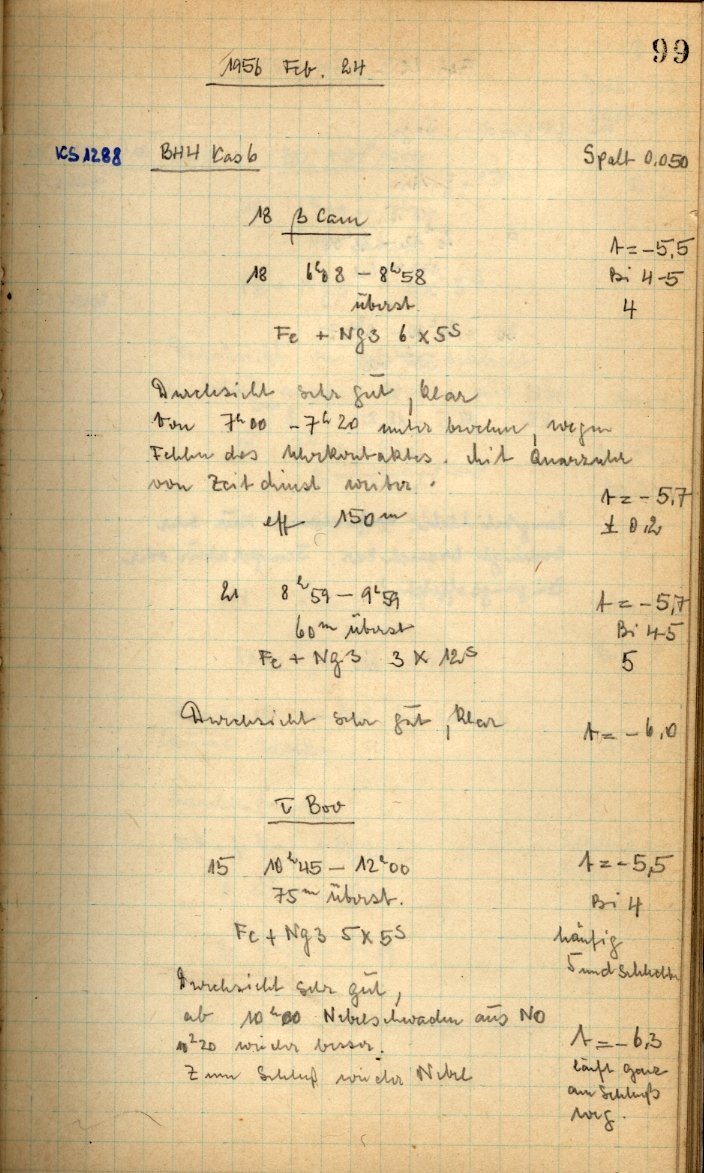 99
1956 Feb. 24
KS 1288 BH4 Kas 6 Spalt 0.050
18 β Cam
t = -5,5
18 6h08 - 8h58 Bi 4-5
überst. 4
Fe + Ng3 6 x 5s
Durchsicht sehr gut, klar
von 7h00 - 7h20 unterbrochen, wegen
Fehlen des Uhrkontaktes. Mit Quarzuhr
von Zeitdienst weiter.
t = -5,7
eff 150m ± 0,2
21 8h59 - 9h59 t = -5,7
60m überst Bi 4-5
Fe + Ng3 3 x 12s 5
Durchsicht sehr gut, klar t = -6,0
τ Boo
15 10h45 - 12h00 t = -5,5
75m überst. Bi 4
Fe + Ng3 5 x 5s häufig
5 und schlechter
Durchsicht sehr gut,
ab 10h00 Nebelschwaden aus NO
10h20 wieder besser. t = -6,3
Zum Schluß wieder Nebel läuft ganz
am Schluß
weg.